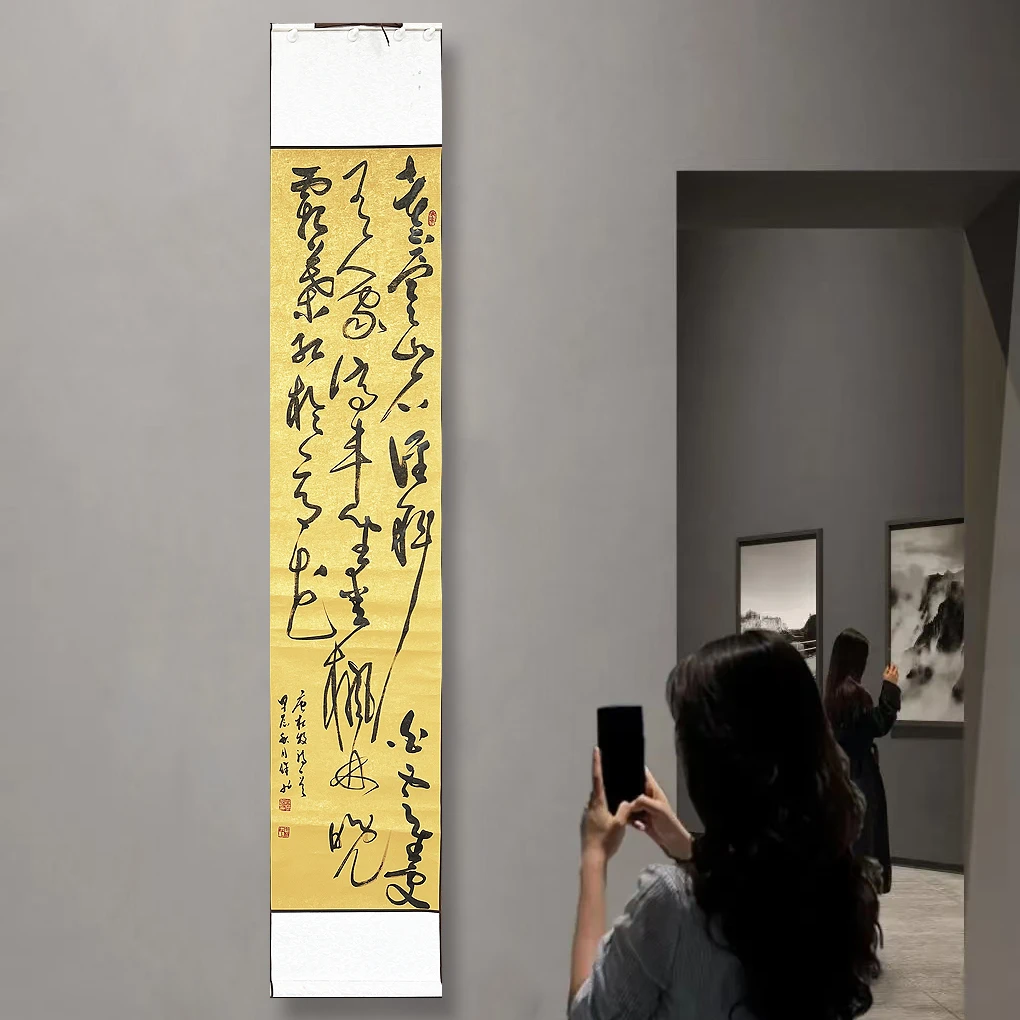 遠上寒山石径斜白云生處
有人家停车坐爱楓林晚
霜葉红於二月花
唐杜牧诗一首
甲辰秋月